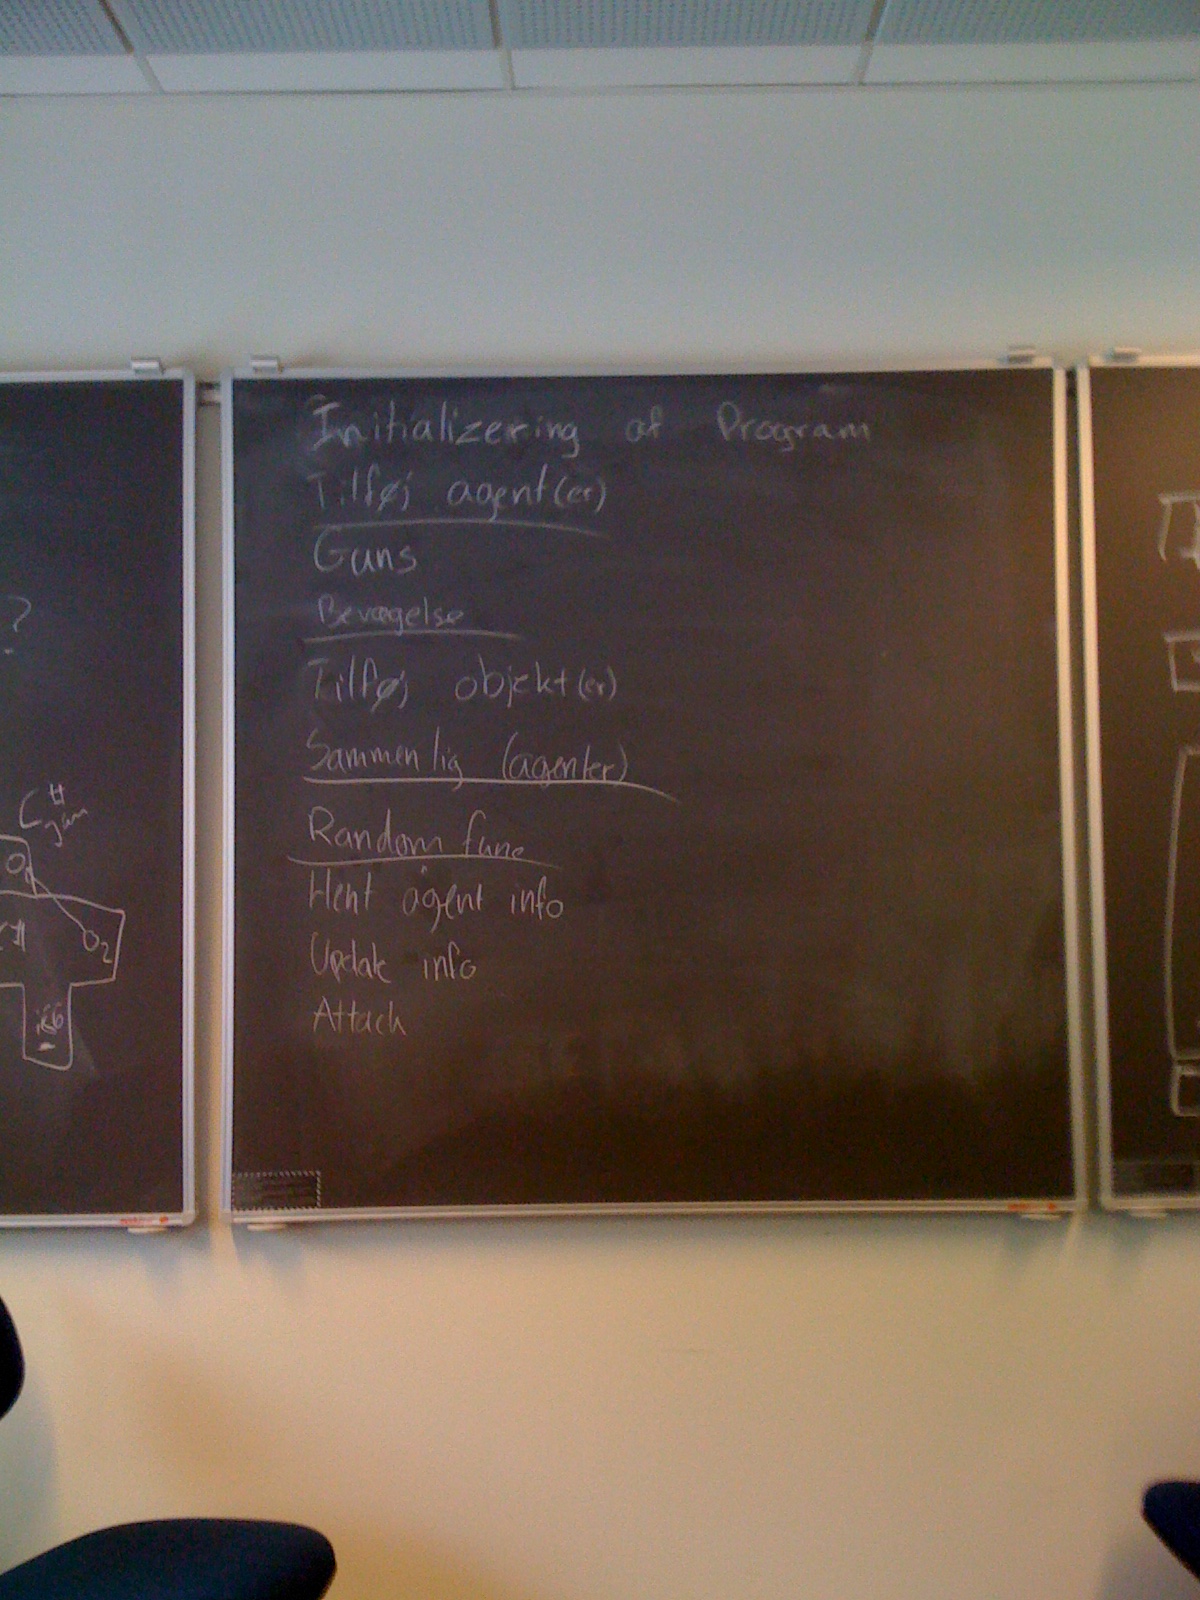 Initializering af Program
Tilføj agent(er)
Guns
Bevægelse
Tilføj objekt(er)
Sammenlig (agenter)
Random func
Hent agent info
Update info
Attach
?
C#
O1
O2